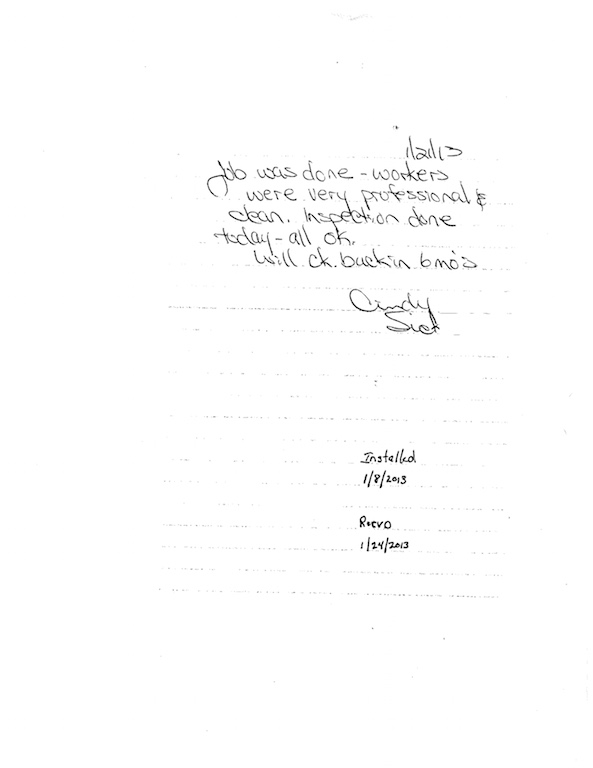 1/21/13
Job was done - workers
were very professional &
clean. Inspection done
today - all ok.
Will ck. back in 6 mo's
Cindy
Installed
1/8/2013
Rcvd
1/24/2013